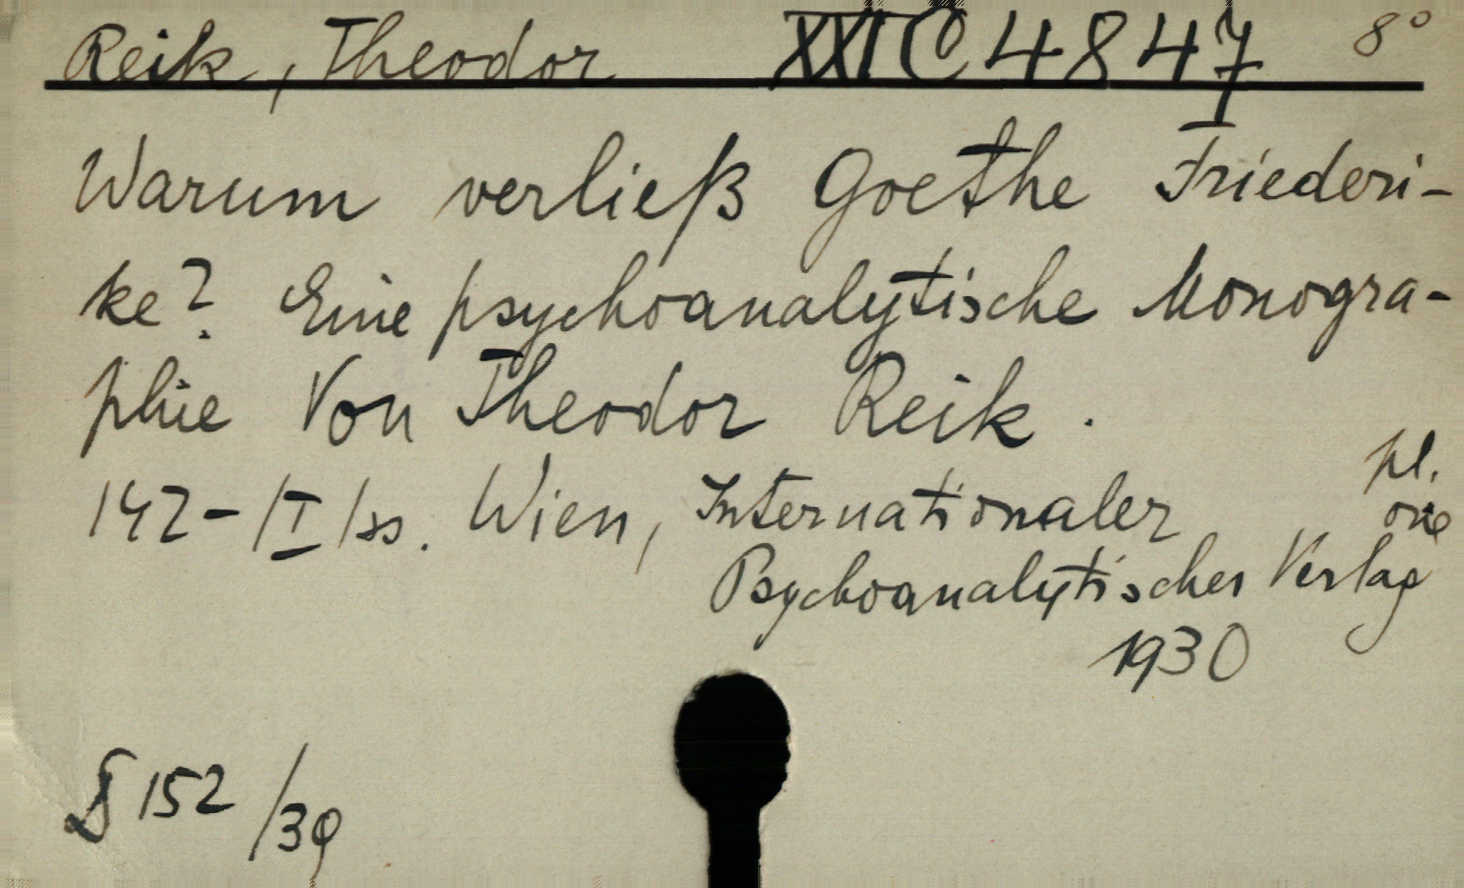 Reik, Theodor XXI C 4847 8°
Warum verließ Goethe Friederi-
ke? Eine psychoanalytische Monogra-
phie Von Theodor Reik.
pl.
142-|I|ss. Wien, Internationaler
Psychoanalytischer Verlag
1930
152/39